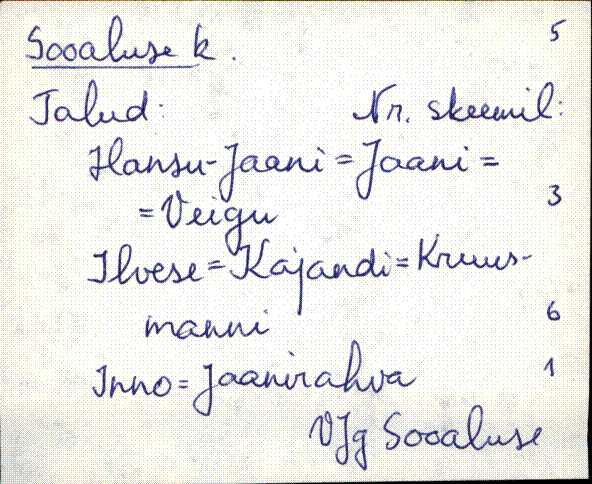 5
Sooaluse k.
Talud: Nr. skeemil:
Hansu-Jaani = Jaani =
= Veigu 3
Ilvese = Kajandi = Kruus-
manni 6
Inno = Jaanirahva 1
VJg Sooaluse